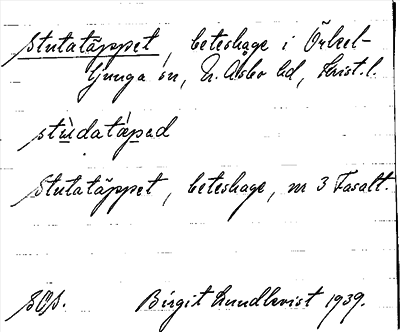 Stutatäppet, beteshage i Örkel-
ljunga sn, N. Åsbo hd, Krist. l.
stùdatápəd
Stutatäppet, beteshage, nr 3 Fasalt.
Birgit Lundkvist 1939.